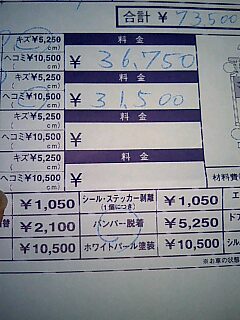 合計 ¥ 73,500
キズ¥5,250 料金
cm)
ヘコミ¥10,500 ¥ 36,750
cm)
キズ¥5,250 料金
cm)
ヘコミ¥10,500 ¥ 31,500
cm)
キズ¥5,250 料金
cm)
ヘコミ¥10,500 ¥
cm)
キズ¥5,250 料金
cm)
ヘコミ¥10,500 ¥
cm) 材料費
¥1,050 シール・ステッカー剥離 ¥1,050 エ
(1個につき)
替 ¥2,100 バンパー脱着 ¥5,250 ドア
¥10,500 ホワイトパール塗装 ¥10,500 シル
※お車の状態